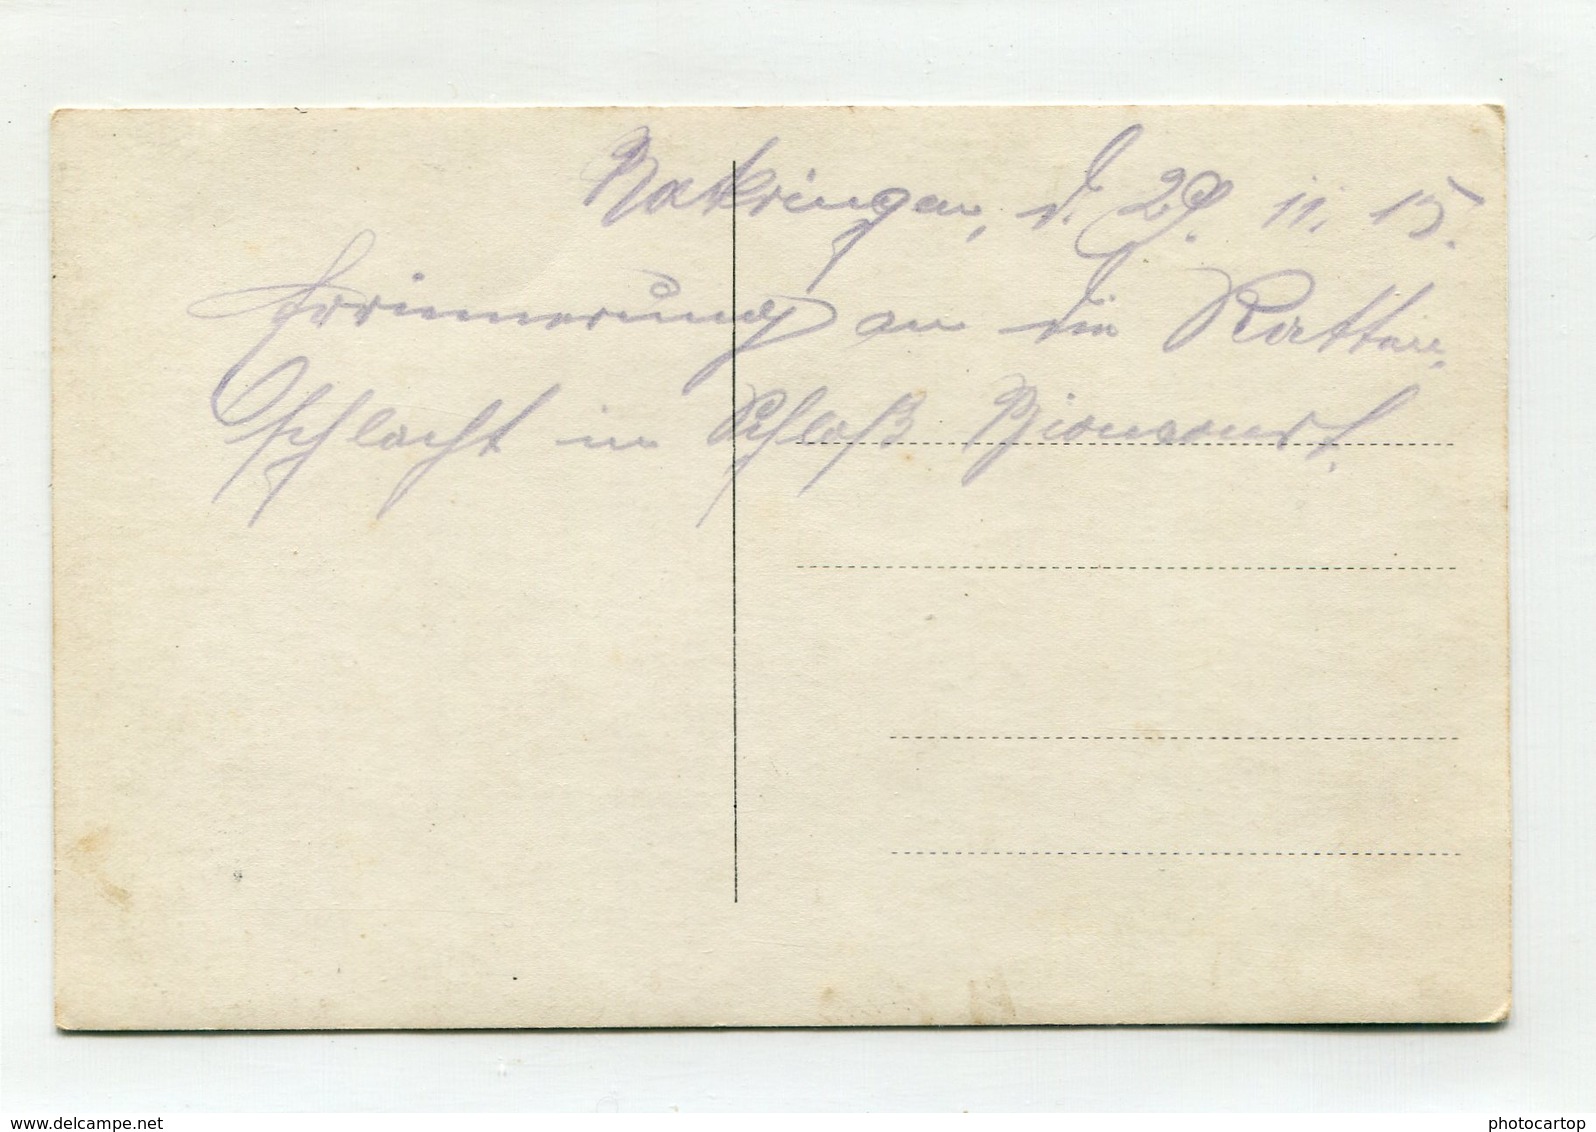 Bakringen, d. 29. 11. 15.
Errinnerung an die Ratten-
schlacht im Schloß Bioncourt.
www.delcampe.net
photocartop